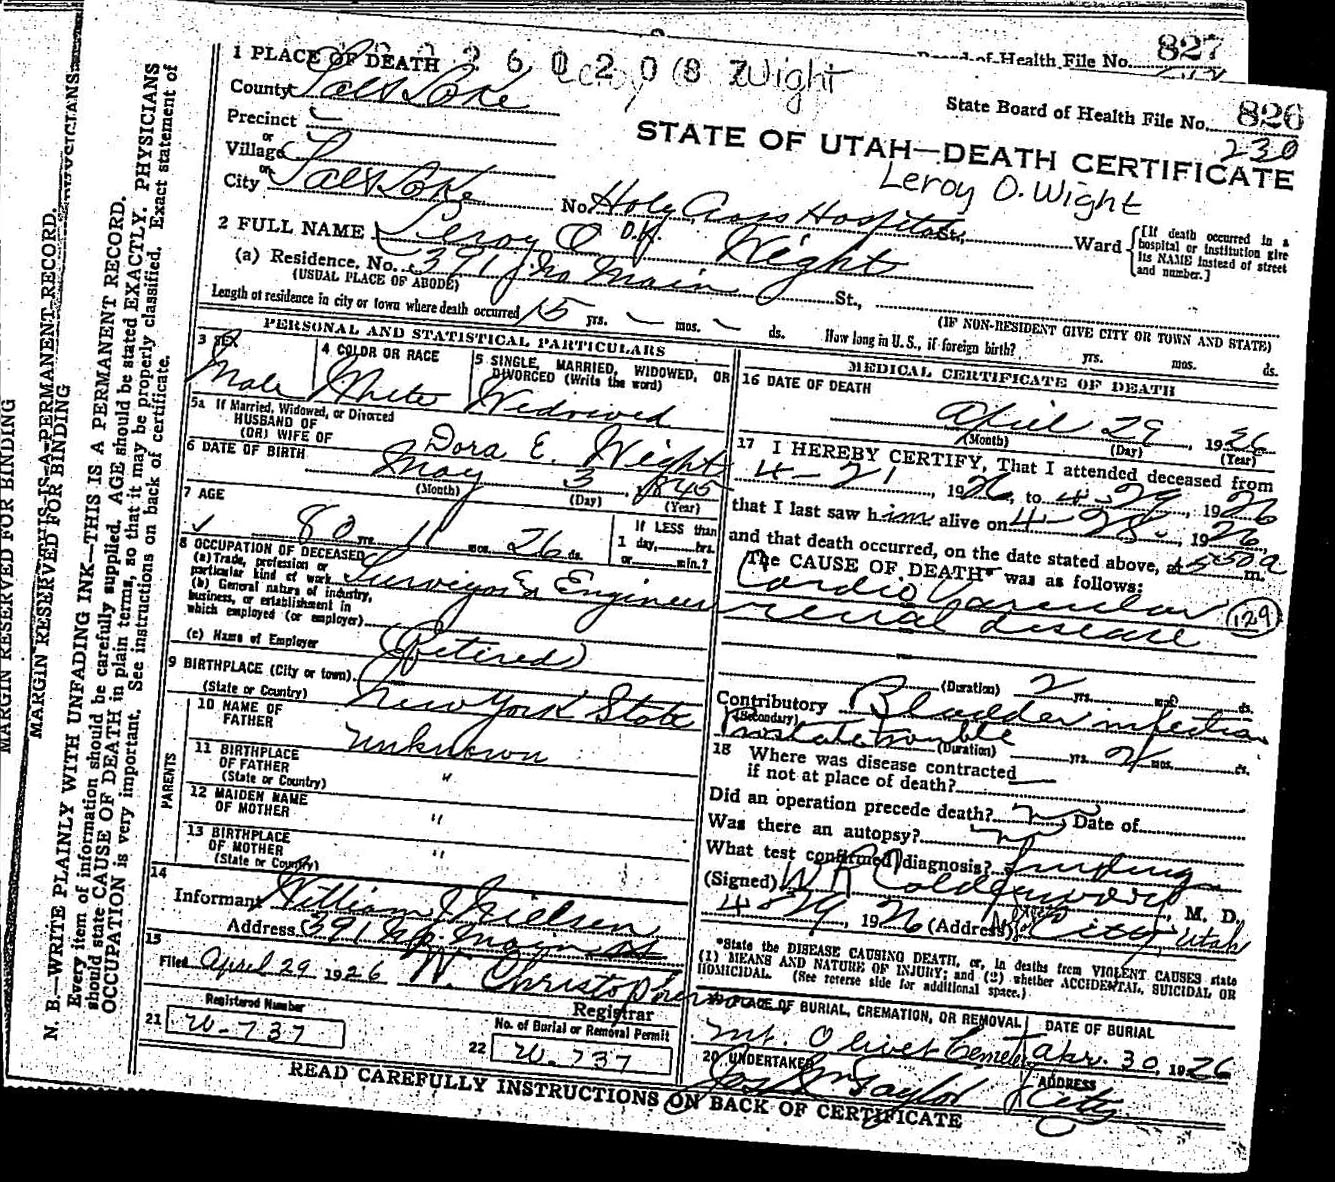 827
Board of Health File No.
1 PLACE OF DEATH 2 6 0 2 0 8 7 Leroy O Wight
County Salt Lake
State Board of Health File No. 826
230
Precinct
or
Village
or
City Salt Lake
STATE OF UTAH—DEATH CERTIFICATE
Leroy O. Wight
No. Holy Cross Hospital St., Ward
[If death occurred in a hospital or institution give its NAME instead of street and number.]
2 FULL NAME Leroy O Wight
(a) Residence, No. 391 No Main St.,
(USUAL PLACE OF ABODE)
(IF NON-RESIDENT GIVE CITY OR TOWN AND STATE)
Length of residence in city or town where death occurred 15 yrs. — mos. — ds.
How long in U. S., if foreign birth? yrs. mos. ds.
PERSONAL AND STATISTICAL PARTICULARS
3 SEX
Male
4 COLOR OR RACE
White
5 SINGLE, MARRIED, WIDOWED, OR DIVORCED (Write the word)
Widowed
5a If Married, Widowed, or Divorced
HUSBAND OF
(OR) WIFE OF
Dora E. Wight
6 DATE OF BIRTH
May 3, 1845
(Month) (Day) (Year)
7 AGE
80 yrs. 11 mos. 26 ds.
If LESS than
1 day, hrs.
or min.?
8 OCCUPATION OF DECEASED
(a) Trade, profession or
particular kind of work Surveyor & Engineer
(b) General nature of industry,
business, or establishment in
which employed (or employer)
(c) Name of Employer (Retired)
9 BIRTHPLACE (City or town)
(State or Country) New York State
PARENTS
10 NAME OF
FATHER unknown
11 BIRTHPLACE
OF FATHER "
(State or Country)
12 MAIDEN NAME
OF MOTHER "
13 BIRTHPLACE
OF MOTHER "
(State or Country)
14
Informant William J Nielsen
Address 391 No. Main St
15
Filed April 29 1926 W. Christopherson
Registrar
Registered Number
21 W-737
No. of Burial or Removal Permit
22 W-737
MEDICAL CERTIFICATE OF DEATH
16 DATE OF DEATH
April 29, 1926
(Month) (Day) (Year)
17 I HEREBY CERTIFY, That I attended deceased from
4-21, 1926, to 4-29, 1926
that I last saw him alive on 4-28, 1926,
and that death occurred, on the date stated above, at 5:50a m.
The CAUSE OF DEATH* was as follows:
Cardio Vascular
renal disease
129
(Duration) 2 yrs. mos. ds.
Contributory Bladder infection
(Secondary)
Prostate trouble
(Duration) yrs. 2 mos. ds.
18 Where was disease contracted
if not at place of death?
Did an operation precede death? no Date of
Was there an autopsy? no
What test confirmed diagnosis?
(Signed) W R Calderwood, M. D.,
4-29, 1926 (Address) City, Utah
*State the DISEASE CAUSING DEATH, or, in deaths from VIOLENT CAUSES state
(1) MEANS AND NATURE OF INJURY; and (2) whether ACCIDENTAL, SUICIDAL OR
HOMICIDAL. (See reverse side for additional space.)
19 PLACE OF BURIAL, CREMATION, OR REMOVAL
Mt. Olivet Cemetery
DATE OF BURIAL
Apr. 30, 1926
20 UNDERTAKER
Jos Wm Taylor
ADDRESS
City
READ CAREFULLY INSTRUCTIONS ON BACK OF CERTIFICATE
MARGIN RESERVED FOR BINDING
MARGIN RESERVED FOR BINDING
N. B.—WRITE PLAINLY WITH UNFADING INK—THIS IS A PERMANENT RECORD.
Every item of information should be carefully supplied. AGE should be stated EXACTLY. PHYSICIANS
should state CAUSE OF DEATH in plain terms, so that it may be properly classified. Exact statement of
OCCUPATION is very important. See instructions on back of certificate.